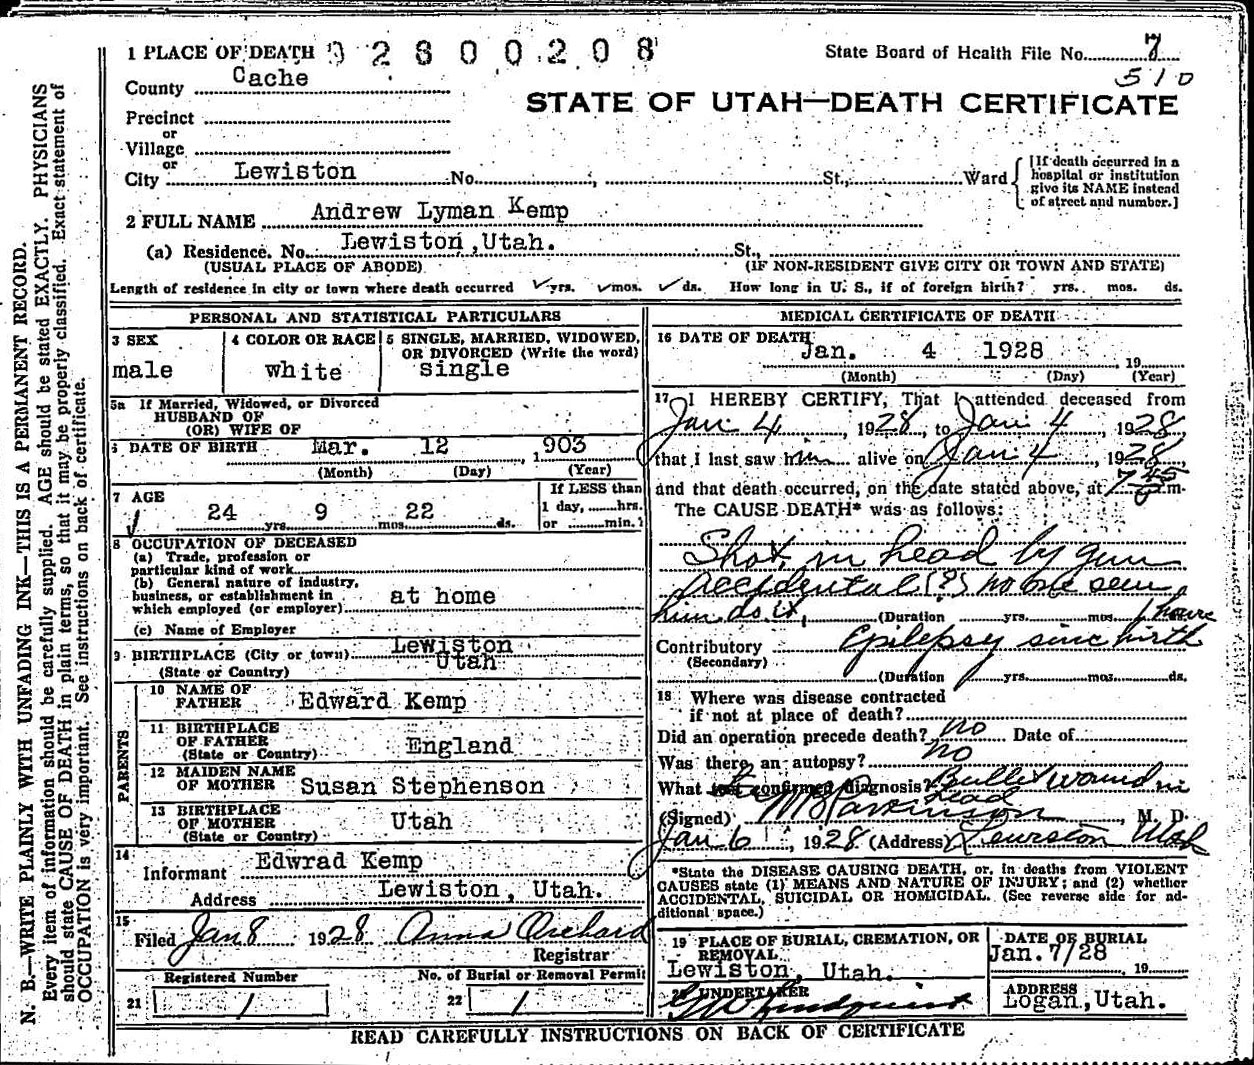 1 PLACE OF DEATH 92800208 State Board of Health File No. 7
510
County Cache
STATE OF UTAH—DEATH CERTIFICATE
Precinct
or
Village
or
City Lewiston No. , St., Ward
[If death occurred in a
hospital or institution
give its NAME instead
of street and number.]
2 FULL NAME Andrew Lyman Kemp
(a) Residence. No. Lewiston, Utah. St.,
(USUAL PLACE OF ABODE) (IF NON-RESIDENT GIVE CITY OR TOWN AND STATE)
Length of residence in city or town where death occurred ✓yrs. ✓mos. ✓ds. How long in U. S., if of foreign birth? yrs. mos. ds.
PERSONAL AND STATISTICAL PARTICULARS
3 SEX
male
4 COLOR OR RACE
white
5 SINGLE, MARRIED, WIDOWED,
OR DIVORCED (Write the word)
single
5a If Married, Widowed, or Divorced
HUSBAND OF
(OR) WIFE OF
6 DATE OF BIRTH Mar. 12 1903
(Month) (Day) (Year)
7 AGE
24 yrs. 9 mos. 22 ds.
If LESS than
1 day, hrs.
or min.
8 OCCUPATION OF DECEASED
(a) Trade, profession or
particular kind of work
(b) General nature of industry,
business, or establishment in
which employed (or employer) at home
(c) Name of Employer
9 BIRTHPLACE (City or town) Lewiston
(State or Country) Utah
PARENTS
10 NAME OF
FATHER Edward Kemp
11 BIRTHPLACE
OF FATHER
(State or Country) England
12 MAIDEN NAME
OF MOTHER Susan Stephenson
13 BIRTHPLACE
OF MOTHER
(State or Country) Utah
14
Informant Edwrad Kemp
Address Lewiston, Utah.
15
Filed Jan 8 1928 Anna Orchard
Registrar
Registered Number
21 1
No. of Burial or Removal Permit
22 1
MEDICAL CERTIFICATE OF DEATH
16 DATE OF DEATH
Jan. 4 1928 19
(Month) (Day) (Year)
17 I HEREBY CERTIFY, That I attended deceased from
Jan 4, 1928, to Jan 4, 1928
that I last saw him alive on Jan 4, 1928
and that death occurred, on the date stated above, at 7 45 p.m.
The CAUSE DEATH* was as follows:
Shot in head by gun
Accidental (?) no one seen
him do it, (Duration yrs. mos. 1 hour
Contributory Epilepsy sinc birth
(Secondary)
(Duration yrs. mos. ds.
18 Where was disease contracted
if not at place of death?
Did an operation precede death? no Date of
Was there an autopsy? no
What test confirmed diagnosis? Bullet wound in
head
(Signed) Parkinson, M. D.
Jan 6, 1928 (Address) Lewiston Utah
*State the DISEASE CAUSING DEATH, or, in deaths from VIOLENT
CAUSES state (1) MEANS AND NATURE OF INJURY; and (2) whether
ACCIDENTAL, SUICIDAL OR HOMICIDAL. (See reverse side for ad-
ditional space.)
19 PLACE OF BURIAL, CREMATION, OR
REMOVAL
Lewiston, Utah.
DATE OF BURIAL
Jan. 7/28
19
20 UNDERTAKER
ADDRESS
Logan, Utah.
READ CAREFULLY INSTRUCTIONS ON BACK OF CERTIFICATE
N. B.—WRITE PLAINLY WITH UNFADING INK—THIS IS A PERMANENT RECORD.
Every item of information should be carefully supplied. AGE should be stated EXACTLY. PHYSICIANS
should state CAUSE OF DEATH in plain terms, so that it may be properly classified. Exact statement of
OCCUPATION is very important. See instructions on back of certificate.